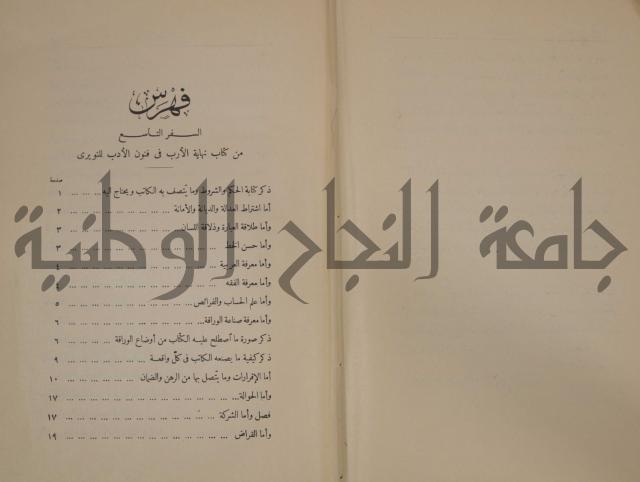 فهرس
السفر التاسع
من كتاب نهاية الأرب فى فنون الأدب للنويرى
صفحة
ذكر كتابة الحكم والشروط وما يتصف به الكاتب ويحتاج اليه ... ... ... ١
أما اشتراط العدالة والديانة والأمانة ... ... ... ٢
وأما طلاقة العبارة وذلاقة اللسان ... ... ... ٣
وأما حسن الخط ... ... ... ٣
وأما معرفة العربية ... ... ... ٤
وأما معرفة الفقه ... ... ... ٤
وأما علم الحساب والفرائض ... ... ... ٥
وأما معرفة صناعة الوراقة ... ... ... ٦
ذكر صورة ما اصطلح عليه الكتّاب من أوضاع الوراقة ... ... ... ٦
ذكر كيفية ما يصنعه الكاتب فى كلّ واقعة ... ... ... ٩
أما الإقرارات وما يتّصل بها من الرهن والضمان ... ... ... ١٠
وأما الحوالة ... ... ... ١٧
فصل وأما الشركة ... ... ... ١٧
وأما القراض ... ... ... ١٩
جامعة النجاح الوطنية